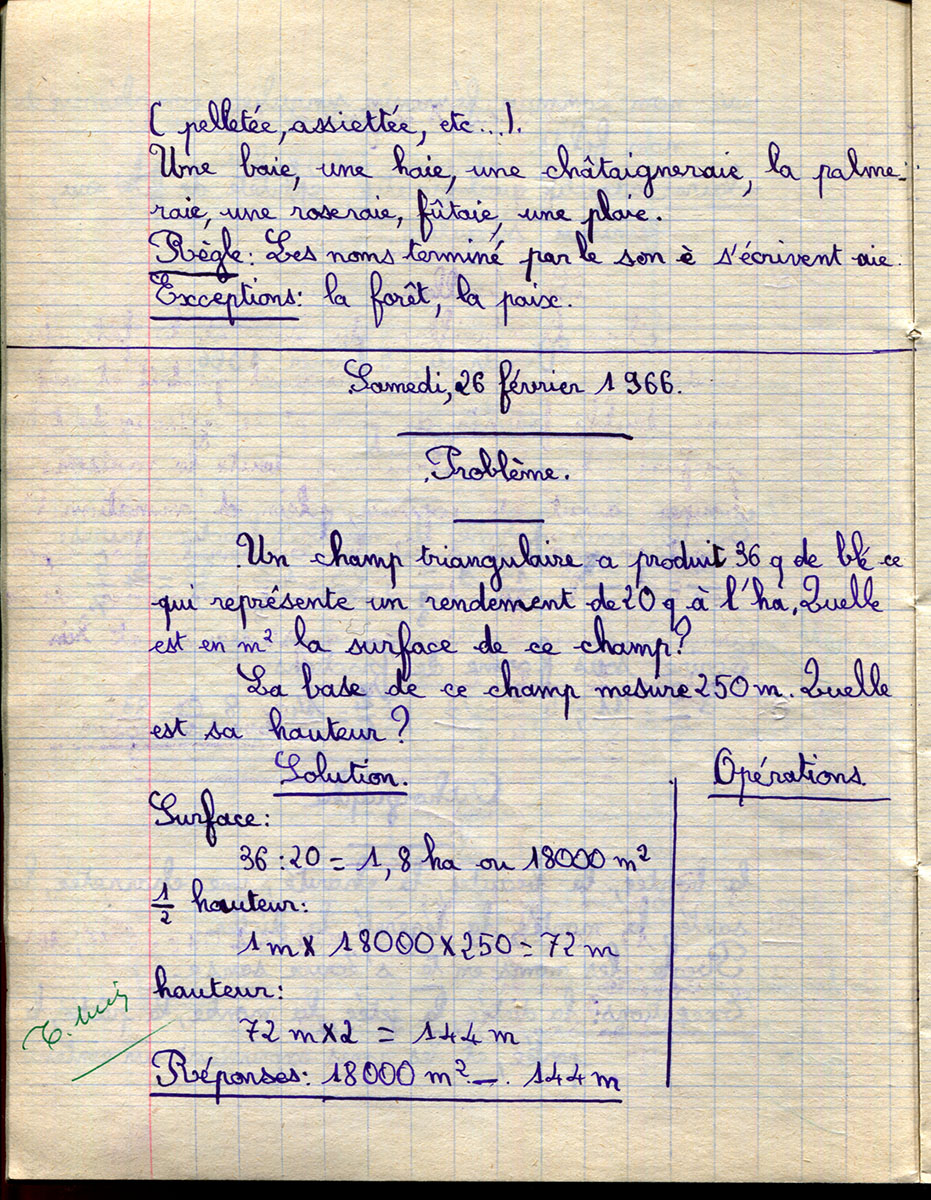 ( pelletée, assiettée, etc...).
Une baie, une haie, une châtaigneraie, la palme-
raie, une roseraie, fûtaie, une plaie.
Règle: Les noms terminé par le son è s'écrivent aie.
Exceptions: la forêt, la paix.
Samedi, 26 février 1966.
Problème.
Un champ triangulaire a produit 36 q de blé ce
qui représente un rendement de 20 q à l'ha. Quelle
est en m² la surface de ce champ?
La base de ce champ mesure 250 m. Quelle
est sa hauteur?
Solution.
Opérations.
Surface:
36 : 20 = 1,8 ha ou 18000 m²
1/2 hauteur:
1 m x 18000 x 250 = 72 m
hauteur:
72 m x 2 = 144 m
T. bien
Réponses: 18000 m² _. 144 m